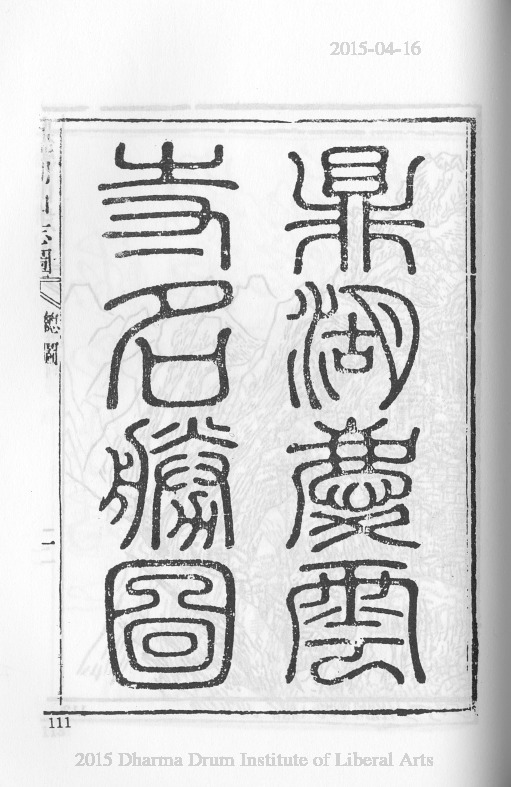 2015-04-16
鼎湖慶雲
寺名勝圖
一
111
2015 Dharma Drum Institute of Liberal Arts